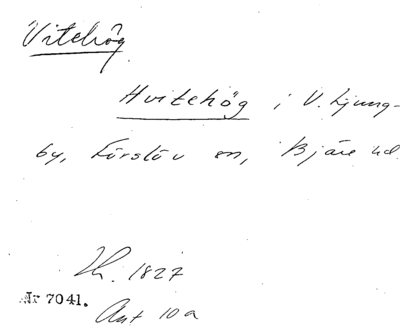 Vitehög
Hvitehög i V. Ljung-
by, Förslöv sn, Bjäre hd.
1827
Nr 7041.
Ant 10a